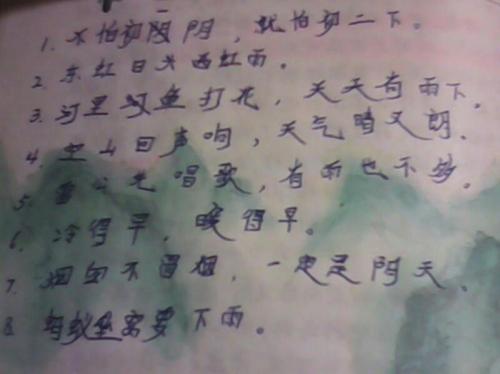 1. 不怕初一阴，就怕初二下。
2. 东虹日头西虹雨。
3. 河里河鱼打花，天天有雨下。
4. 空山回声响，天气晴又朗。
5. 先唱歌，有雨也不多。
6. 冷得早，暖得早。
7. 烟囱不冒烟，一定是阴天。
8. 蚂蚁垒窝要下雨。